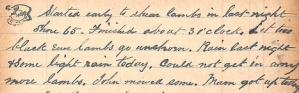 Started early to shear lambs in last night.
Shore 65. Finished about 3 o'clock. Let two
black Ewe lambs go unshorn. Rain last night
& some light rain today. Could not get in any
more lambs. John mowed some. Mam got up